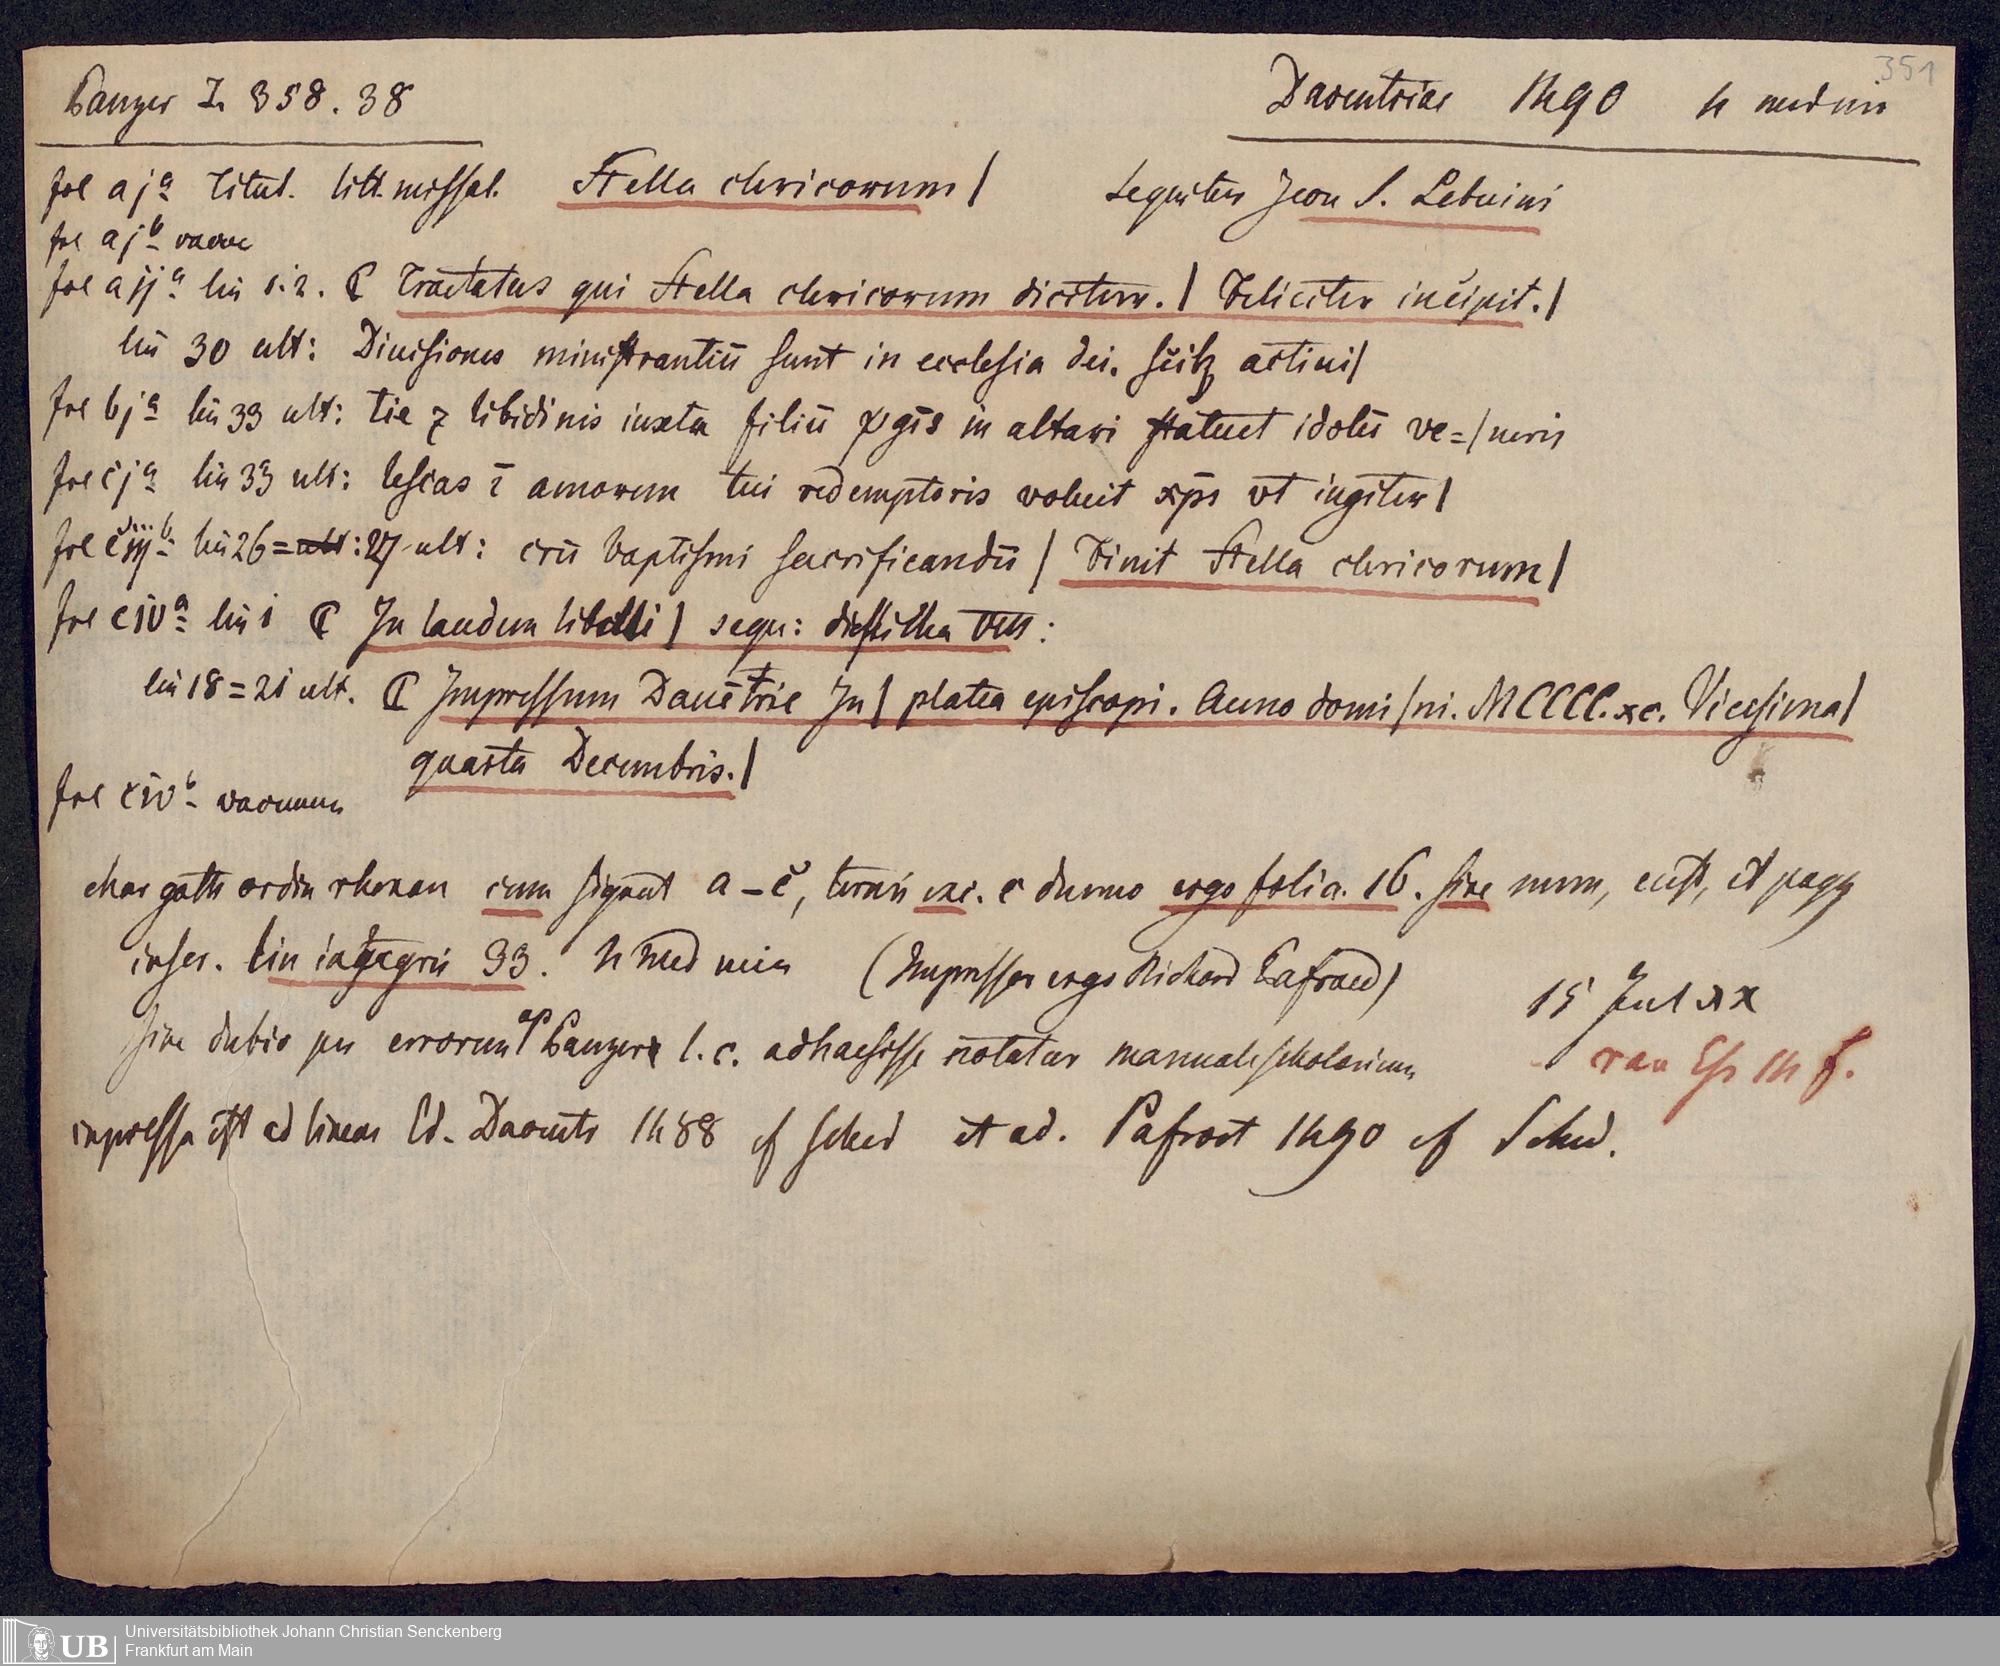 351
Panzer I. 358. 38 Daventriae 1490 4 med min
fol ajª Titul. litt. missal. Stella clericorum | sequitur Icon S. Lebuini
fol ajᵇ vacue
fol aijª lin 1.2. ⸿ Tractatus qui Stella clericorum dicitur. | Feliciter incipit. |
lin 30 ult: Diuisiones ministrantiū sunt in ecclesia dei. actiui |
fol bjª lin 33 ult: tie ⁊ libidinis iuxta filiū in altari statuet idolū ve= | neris
fol cjª lin 33 ult: lescas ī amorem tui redemptoris voluit xp̄s vt iugiter |
fol ciijᵇ lin 26 = ult: 27 ult: crū baptismi sacrificandū | Finit Stella clericorum |
fol civª lin 1 ⸿ In laudem libelli | sequ: disticha VIII:
lin 18 = 21 ult. ⸿ Impressum Dauētrie In | platea episcopi. Anno domi | ni. MCCCC.xc. Vicesima |
quarta Decembris. |
fol civᵇ vacuum
char goth ordin rhenan cum signat a – c, terni exc. c duerno ergo folia. 16. sine num, cust, et pagg
inscr. lin integris 33. 4 med min (Impressor ergo Richard Pafraed)
sine dubio per errorem ap Panzer l. c. adhaesisse notatur manuale scholarium
impressa est ad lineas Ed. Davent 1488 cf sched et ad. Pafraet 1490 cf Sched.
15 Jul xx
van Ess 14 f.
Universitätsbibliothek Johann Christian Senckenberg
Frankfurt am Main
UB